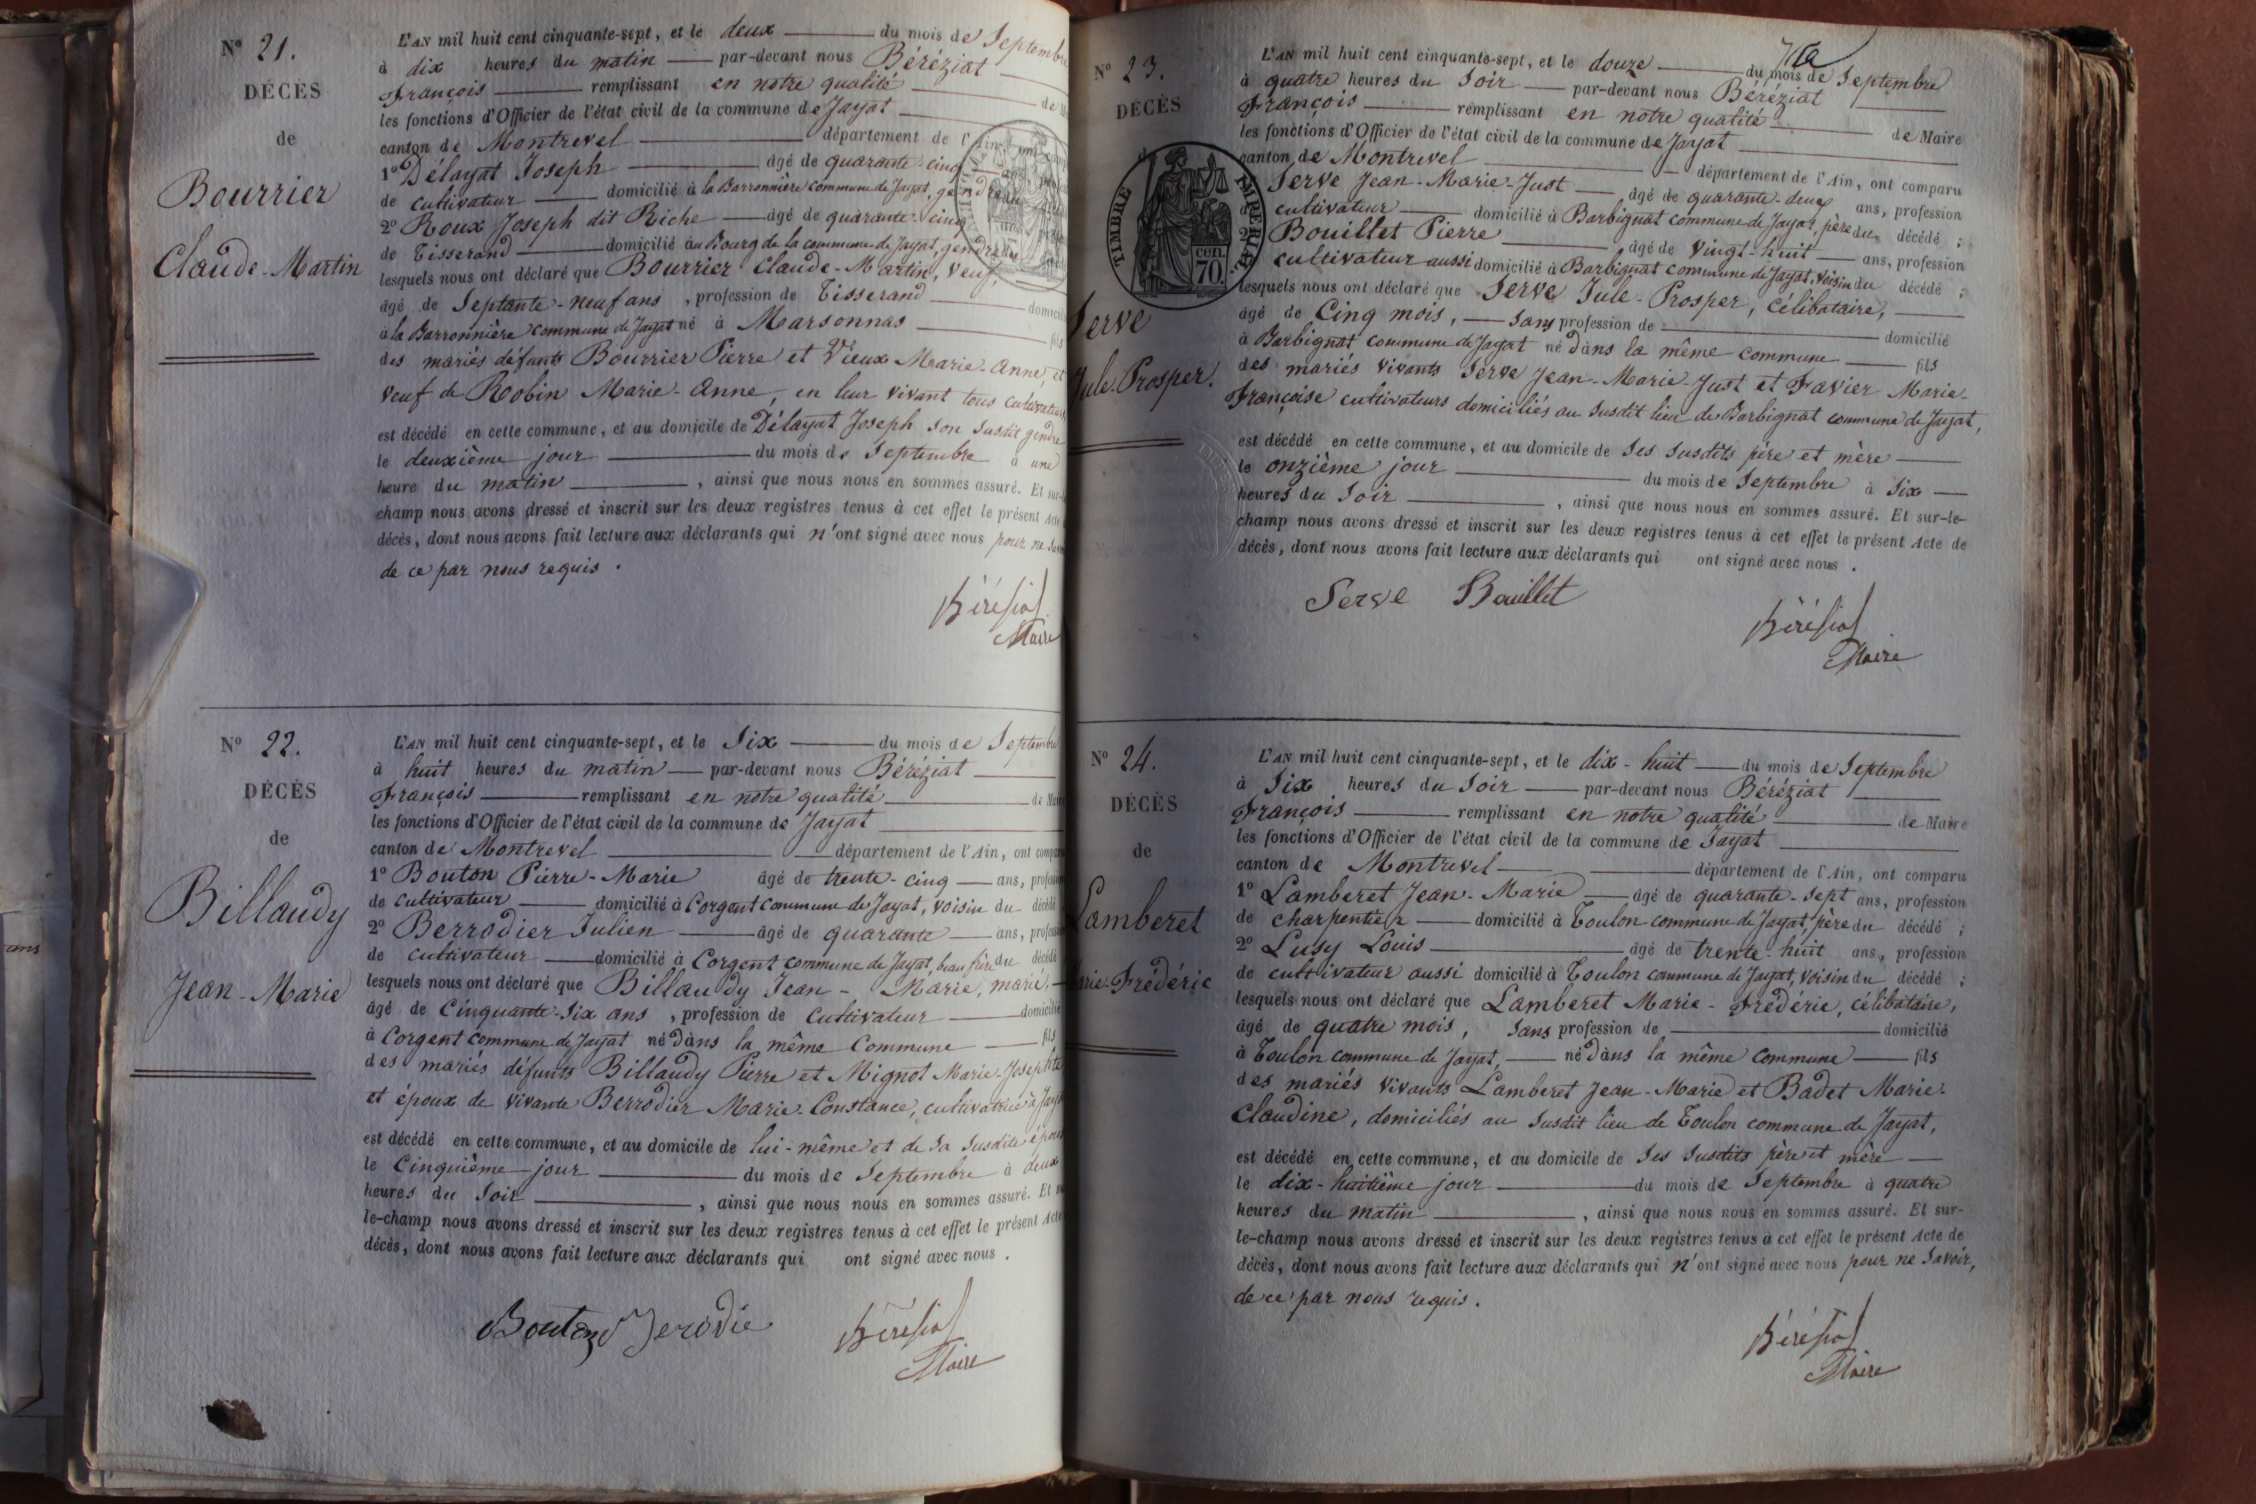 N° 21.
DÉCÈS
de
Bourrier
Claude-Martin
L'AN mil huit cent cinquante-sept, et le deux du mois de Septembre
à dix heures du matin par-devant nous Béréziat
François remplissant en notre qualité de
les fonctions d'Officier de l'état civil de la commune de Jayat
canton de Montrevel département de l'Ain, ont
1° Délayat Joseph âgé de quarante-cinq
de cultivateur domicilié à la Barronnière commune de Jayat, gendre
2° Roux Joseph dit Riche âgé de quarante-cinq
de Tisserand domicilié au Bourg de la commune de Jayat, gendre
lesquels nous ont déclaré que Bourrier Claude-Martin, veuf,
âgé de Septante-neuf ans, profession de Tisserand domicilié
à la Barronnière commune de Jayat né à Marsonnas fils
des mariés défunts Bourrier Pierre et Vieux Marie-Anne, et
veuf de Robin Marie-Anne, en leur vivant tous cultivateurs,
est décédé en cette commune, et au domicile de Délayat Joseph son susdit gendre
le deuxième jour du mois de Septembre à une
heure du matin, ainsi que nous nous en sommes assuré. Et sur-le-
champ nous avons dressé et inscrit sur les deux registres tenus à cet effet le présent Acte
décès, dont nous avons fait lecture aux déclarants qui n'ont signé avec nous pour ne
de ce par nous requis.
Béréziat
Maire
N° 22.
DÉCÈS
de
Billaudy
Jean-Marie
L'AN mil huit cent cinquante-sept, et le Six du mois de Septembre
à huit heures du matin par-devant nous Béréziat
François remplissant en notre qualité de Maire
les fonctions d'Officier de l'état civil de la commune de Jayat
canton de Montrevel département de l'Ain, ont comparu
1° Bouton Pierre-Marie âgé de trente-cinq ans, profession
de cultivateur domicilié à Corgent commune de Jayat, voisin du décédé
2° Berrodier Julien âgé de quarante ans, profession
de cultivateur domicilié à Corgent commune de Jayat, beau frère du décédé
lesquels nous ont déclaré que Billaudy Jean-Marie, marié,
âgé de Cinquante-Six ans, profession de Cultivateur domicilié
à Corgent commune de Jayat né dans la même Commune fils
des mariés défunts Billaudy Pierre et Mignot Marie-Josephte
et époux de vivante Berrodier Marie-Constance, cultivatrice à Jayat
est décédé en cette commune, et au domicile de lui-même et de sa susdite épouse
le Cinquième jour du mois de Septembre à deux
heures du Soir, ainsi que nous nous en sommes assuré. Et sur-
le-champ nous avons dressé et inscrit sur les deux registres tenus à cet effet le présent Acte
décès, dont nous avons fait lecture aux déclarants qui ont signé avec nous.
Bouton Berodié Béréziat
Maire
N° 23.
DÉCÈS
TIMBRE IMPÉRIAL
cen.
70.
Serve
Jule-Prosper.
L'AN mil huit cent cinquante-sept, et le douze du mois de Septembre
à quatre heures du Soir par-devant nous Béréziat
François remplissant en notre qualité de Maire
les fonctions d'Officier de l'état civil de la commune de Jayat
canton de Montrevel département de l'Ain, ont comparu
Serve Jean-Marie-Just âgé de quarante-deux ans, profession
de cultivateur domicilié à Barbignat commune de Jayat, père du décédé ;
2° Bouillet Pierre âgé de Vingt-huit ans, profession
cultivateur aussi domicilié à Barbignat commune de Jayat, voisin du décédé ;
lesquels nous ont déclaré que Serve Jule-Prosper, Célibataire,
âgé de Cinq mois, Sans profession de domicilié
à Barbignat commune de Jayat né dans la même commune fils
des mariés vivants Serve Jean-Marie-Just et Favier Marie-
Françoise cultivateurs domiciliés au susdit lieu de Barbignat commune de Jayat,
est décédé en cette commune, et au domicile de Ses Susdits père et mère
le onzième jour du mois de Septembre à Six
heures du Soir, ainsi que nous nous en sommes assuré. Et sur-le-
champ nous avons dressé et inscrit sur les deux registres tenus à cet effet le présent Acte de
décès, dont nous avons fait lecture aux déclarants qui ont signé avec nous.
Serve Bouillet
Béréziat
Maire
N° 24.
DÉCÈS
de
Lamberet
Marie-Frédéric
L'AN mil huit cent cinquante-sept, et le dix-huit du mois de Septembre
à Six heures du Soir par-devant nous Béréziat
François remplissant en notre qualité de Maire
les fonctions d'Officier de l'état civil de la commune de Jayat
canton de Montrevel département de l'Ain, ont comparu
1° Lamberet Jean-Marie âgé de quarante-Sept ans, profession
de charpentier domicilié à Toulon commune de Jayat, père du décédé ;
2° Lusy Louis âgé de trente-huit ans, profession
de cultivateur aussi domicilié à Toulon commune de Jayat, voisin du décédé ;
lesquels nous ont déclaré que Lamberet Marie-Frédéric, célibataire,
âgé de quatre mois, Sans profession de domicilié
à Toulon commune de Jayat, né dans la même commune fils
des mariés vivants Lamberet Jean-Marie et Badet Marie-
Claudine, domiciliés au susdit lieu de Toulon commune de Jayat,
est décédé en cette commune, et au domicile de Ses Susdits père et mère
le dix-huitième jour du mois de Septembre à quatre
heures du matin, ainsi que nous nous en sommes assuré. Et sur-
le-champ nous avons dressé et inscrit sur les deux registres tenus à cet effet le présent Acte de
décès, dont nous avons fait lecture aux déclarants qui n'ont signé avec nous pour ne savoir,
de ce par nous requis.
Béréziat
Maire